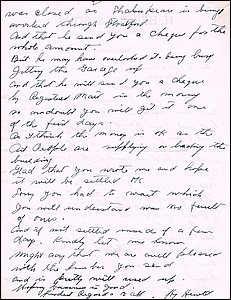 was closed as Shakespeare is being
worked through Stratford
And that he send you a cheque for the
whole amount.
But he may have overlooked it. being busy
getting the Garage up
And that he will send you a cheque
by Registered Mail in the morning
so no doubt you will get it one
of the first days.
As I think the money is OK as the
are supplying or backing the
building
Glad that you wrote me and hope
it will be settled OK
Sorry you had to wait which
you will understand was no fault
of ours.
And if not settled inside of a few
days, Kindly let me know
Might say that we are well pleased
with the you send
and is pretty well used up.
Hoping is good.
Kindest Regards to all.